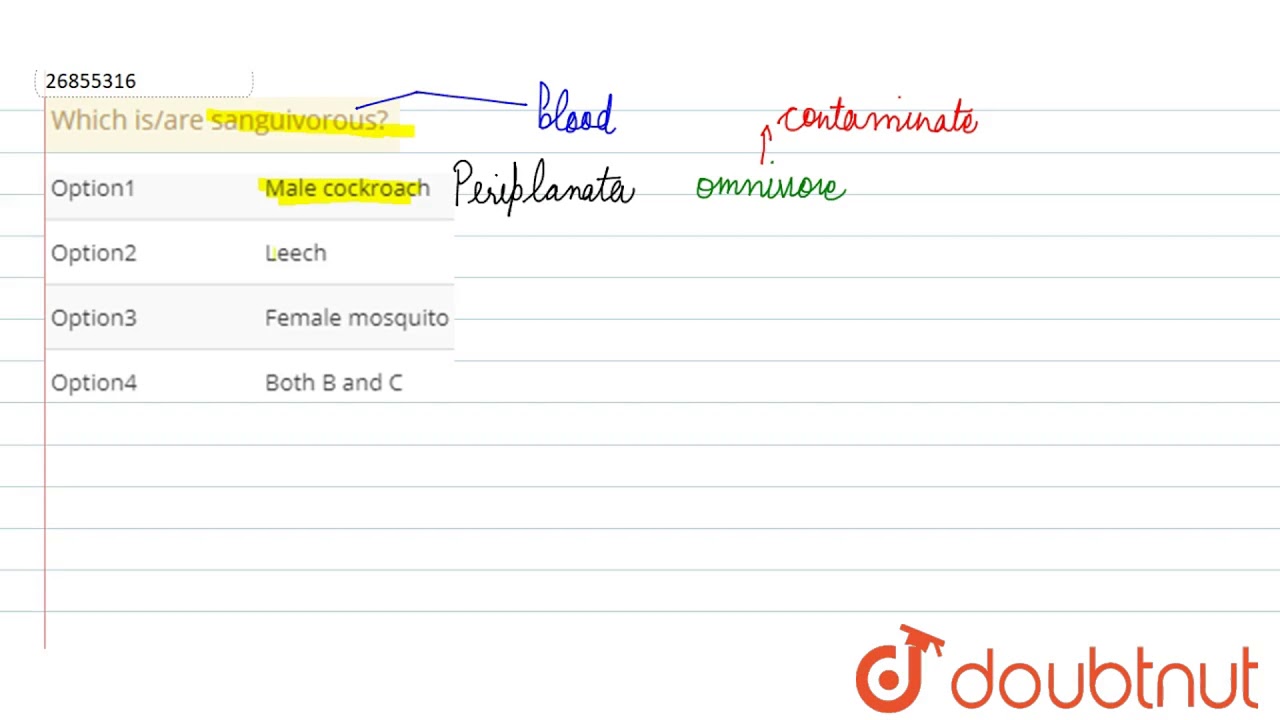 26855316
Which is/are sanguivorous? Blood contaminate
Option1 Male cockroach Periplanata omnivore
Option2 Leech
Option3 Female mosquito
Option4 Both B and C
doubtnut